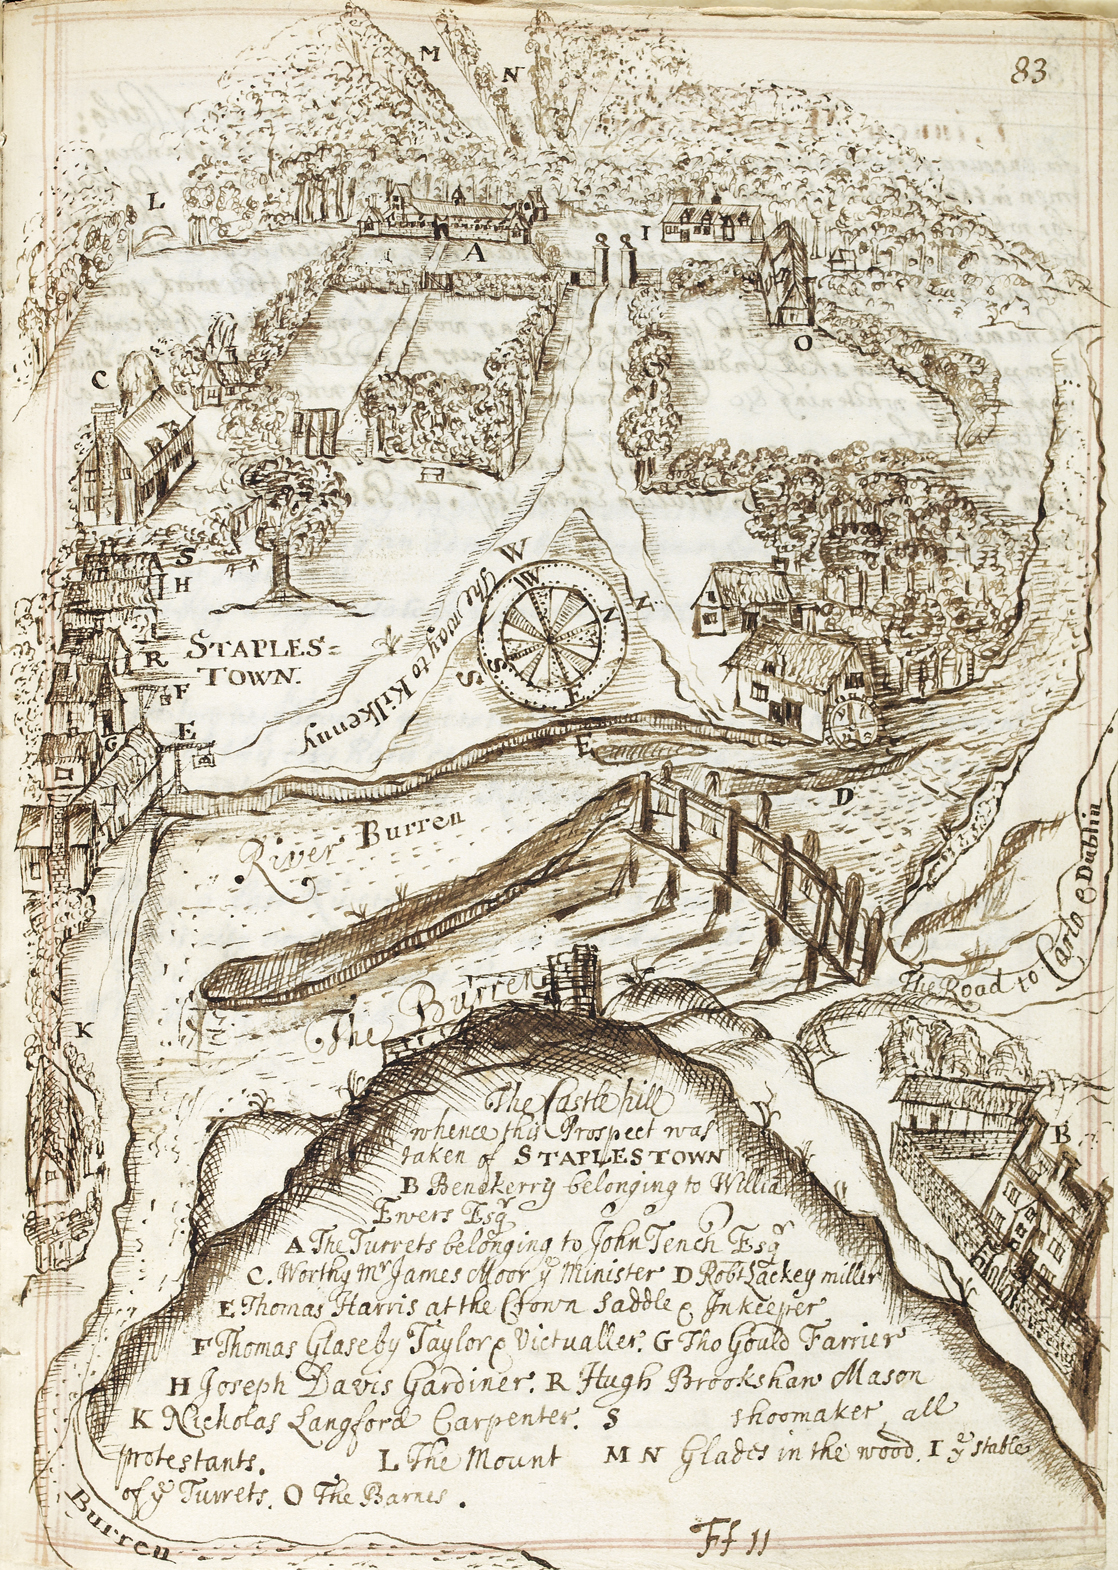 83
M
N
L
A
I
O
C
S
H
R
F
E
G
STAPLES=
TOWN.
The way to Kilkenny
W
W
N
N
S
S
E
E
D
River Burren
The Burren
The Road to Carlo & Dublin
K
B
The Castle hill
whence this Prospect was
taken of STAPLESTOWN
B Benekerry belonging to Willia
Ewers Esqr
A The Turrets belonging to John Tench Esqr
C. Worthy Mr James Moor ye Minister D Robt Lackey miller
E Thomas Harris at the Crown Saddle & Inkeeper
F Thomas Glaseby Taylor & Victualler. G Tho Gould Farrier
H Joseph Davis Gardiner. R Hugh Brookshaw Mason
K Nicholas Langford Carpenter. S shoomaker, all
protestants. L The Mount M N Glades in the wood. I ye stable
of ye Turrets. O The Barnes.
Burren
Ff 11